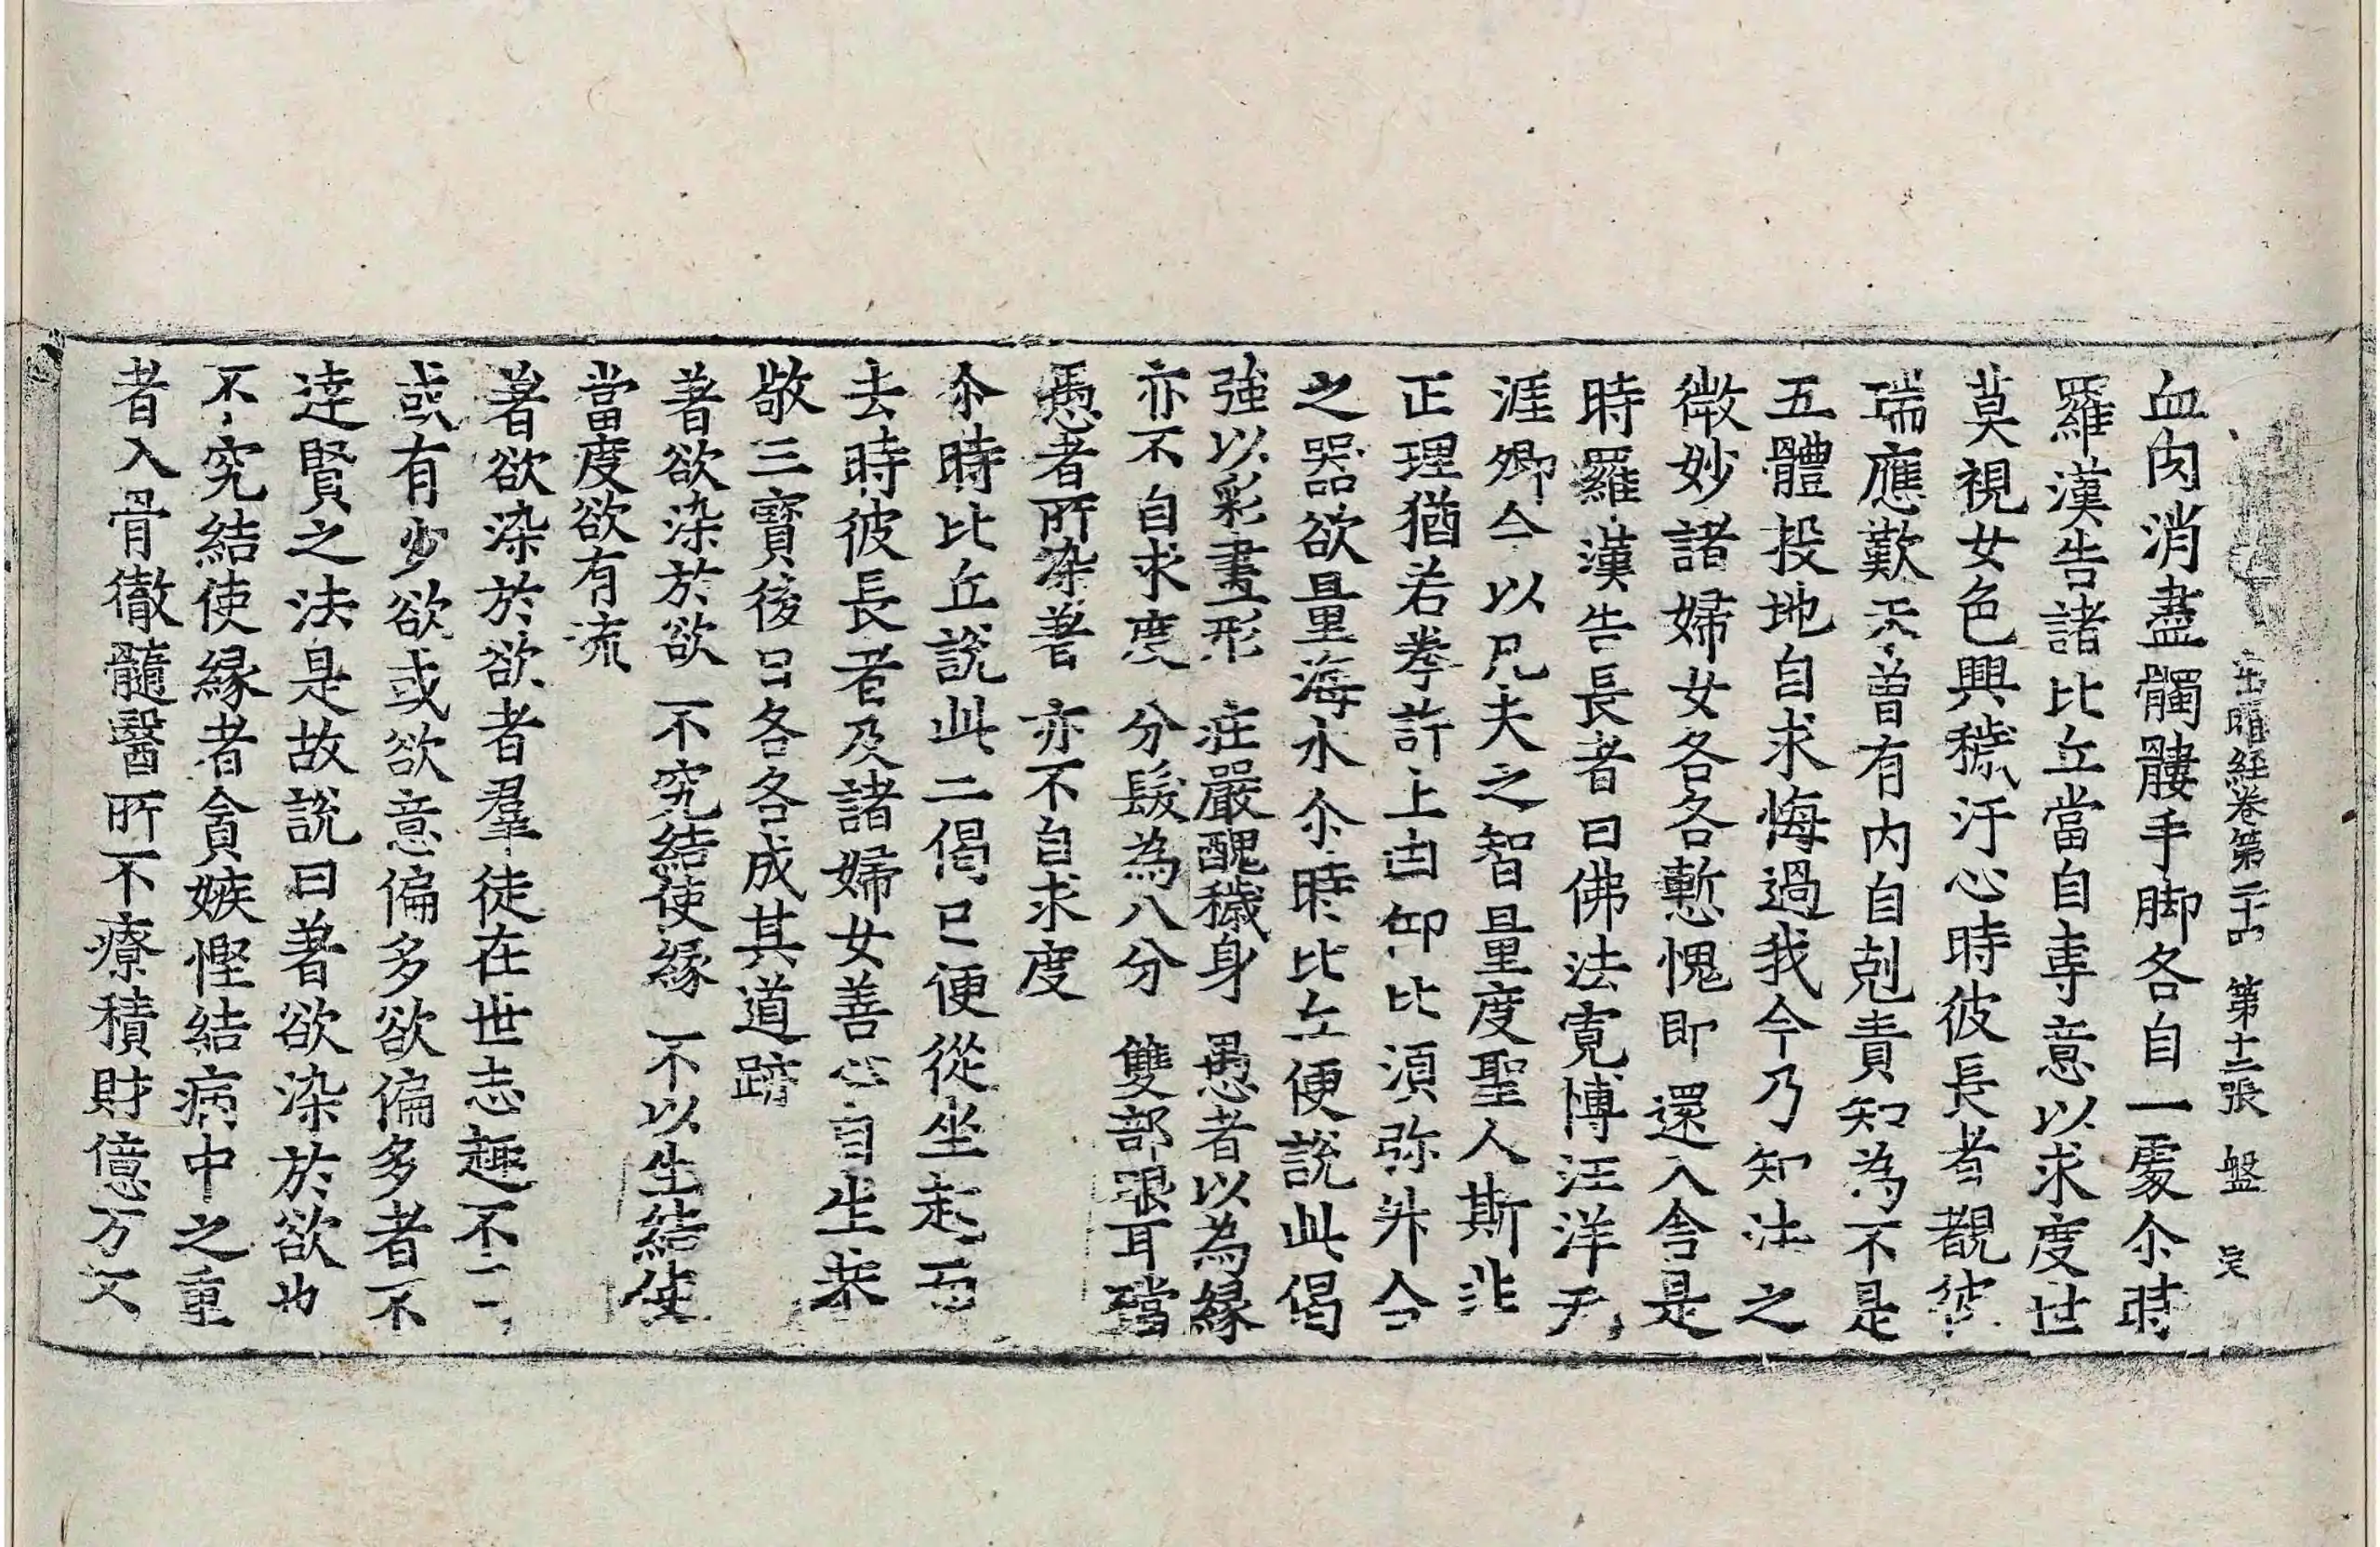 出曜經卷第二十四 第十二張 盤 吴
血肉消盡髑髏手脚各自一處尒時
羅漢告諸比丘當自專意以求度世
莫視女色興穢汙心時彼長者覩彼
瑞應歎未曾有内自剋責知為不是
五體投地自求悔過我今乃知法之
微妙諸婦女各各慙愧即還入舍是
時羅漢告長者曰佛法寬博汪洋无
涯卿今以凡夫之智量度聖人斯非
正理猶若拳許土凷仰比須弥舛合
之器欲量海水尒時比丘便說此偈
強以彩畫形 莊嚴醜穢身 愚者以為緣
亦不自求度 分髮為八分 雙部張耳璫
愚者所染著 亦不自求度
尒時比丘說此二偈已便從坐起而
去時彼長者及諸婦女善心自生恭
敬三寶後日各各成其道跡
著欲染於欲 不究結使緣 不以生結使
當度欲有流
著欲染於欲者羣徒在世志趣不一
或有少欲或欲意偏多欲偏多者不
達賢之法是故說曰著欲染於欲也
不究結使緣者貪嫉慳結病中之重
者入骨徹髓醫所不療積財億万又